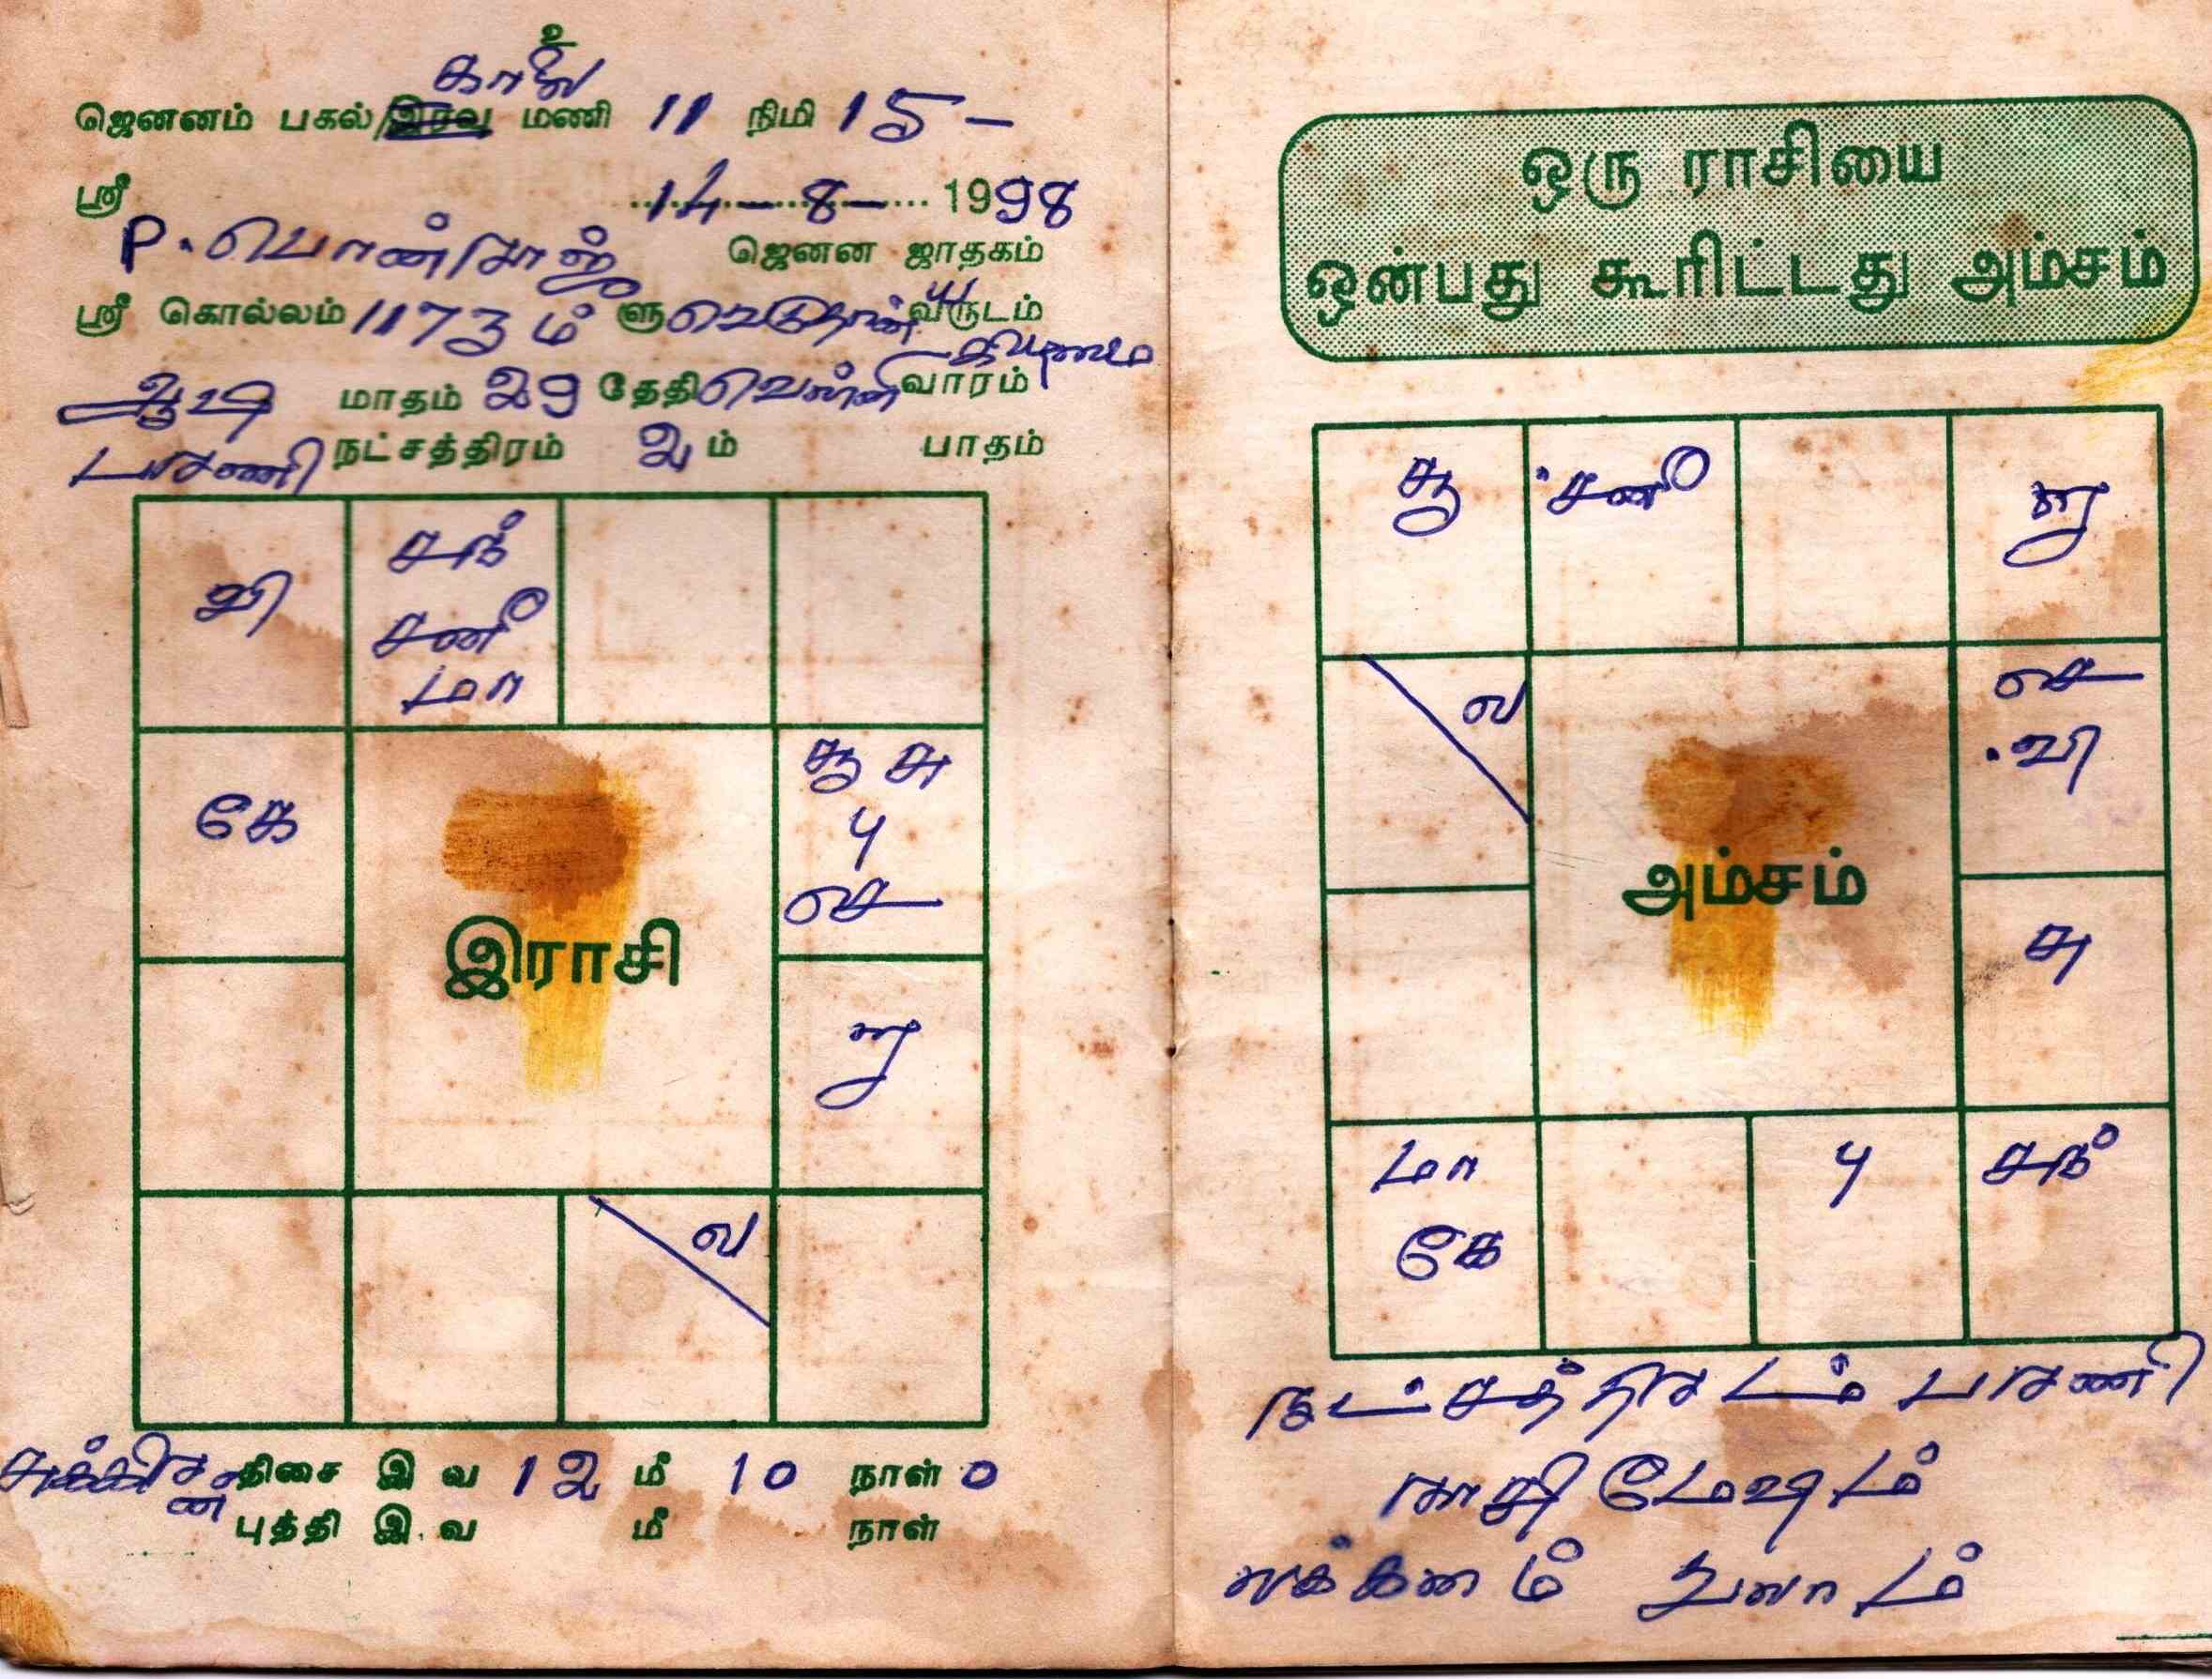 உ
காலை
ஜெனனம் பகல்/இரவு மணி 11 நிமி 15 -
ஸ்ரீ ................ 14 - 8 - 1998
P. பொன்ராஜ் ஜெனன ஜாதகம்
ஸ்ரீ கொல்லம் 1173 ம் ளு வெகுதான்ய வருடம்
ஆடி மாதம் 29 தேதி வெள்ளி கிழமை வாரம்
பரணி நட்சத்திரம் 2 ம் பாதம்
வி
சந்
சனி
மா
கே
சூ சு
பு
செ
இராசி
ரா
ல
சுக்கிரன் திசை இ வ 12 மீ 10 நாள் 0
புத்தி இ. வ மீ நாள்
ஒரு ராசியை
ஒன்பது கூரிட்டது அம்சம்
சூ
சனி
ரா
ல
செ
வி
அம்சம்
சு
மா
கே
பு
சந்
நட்சத்திரம் பரணி
ராசி மேஷம்
லக்கனம் துலாம்